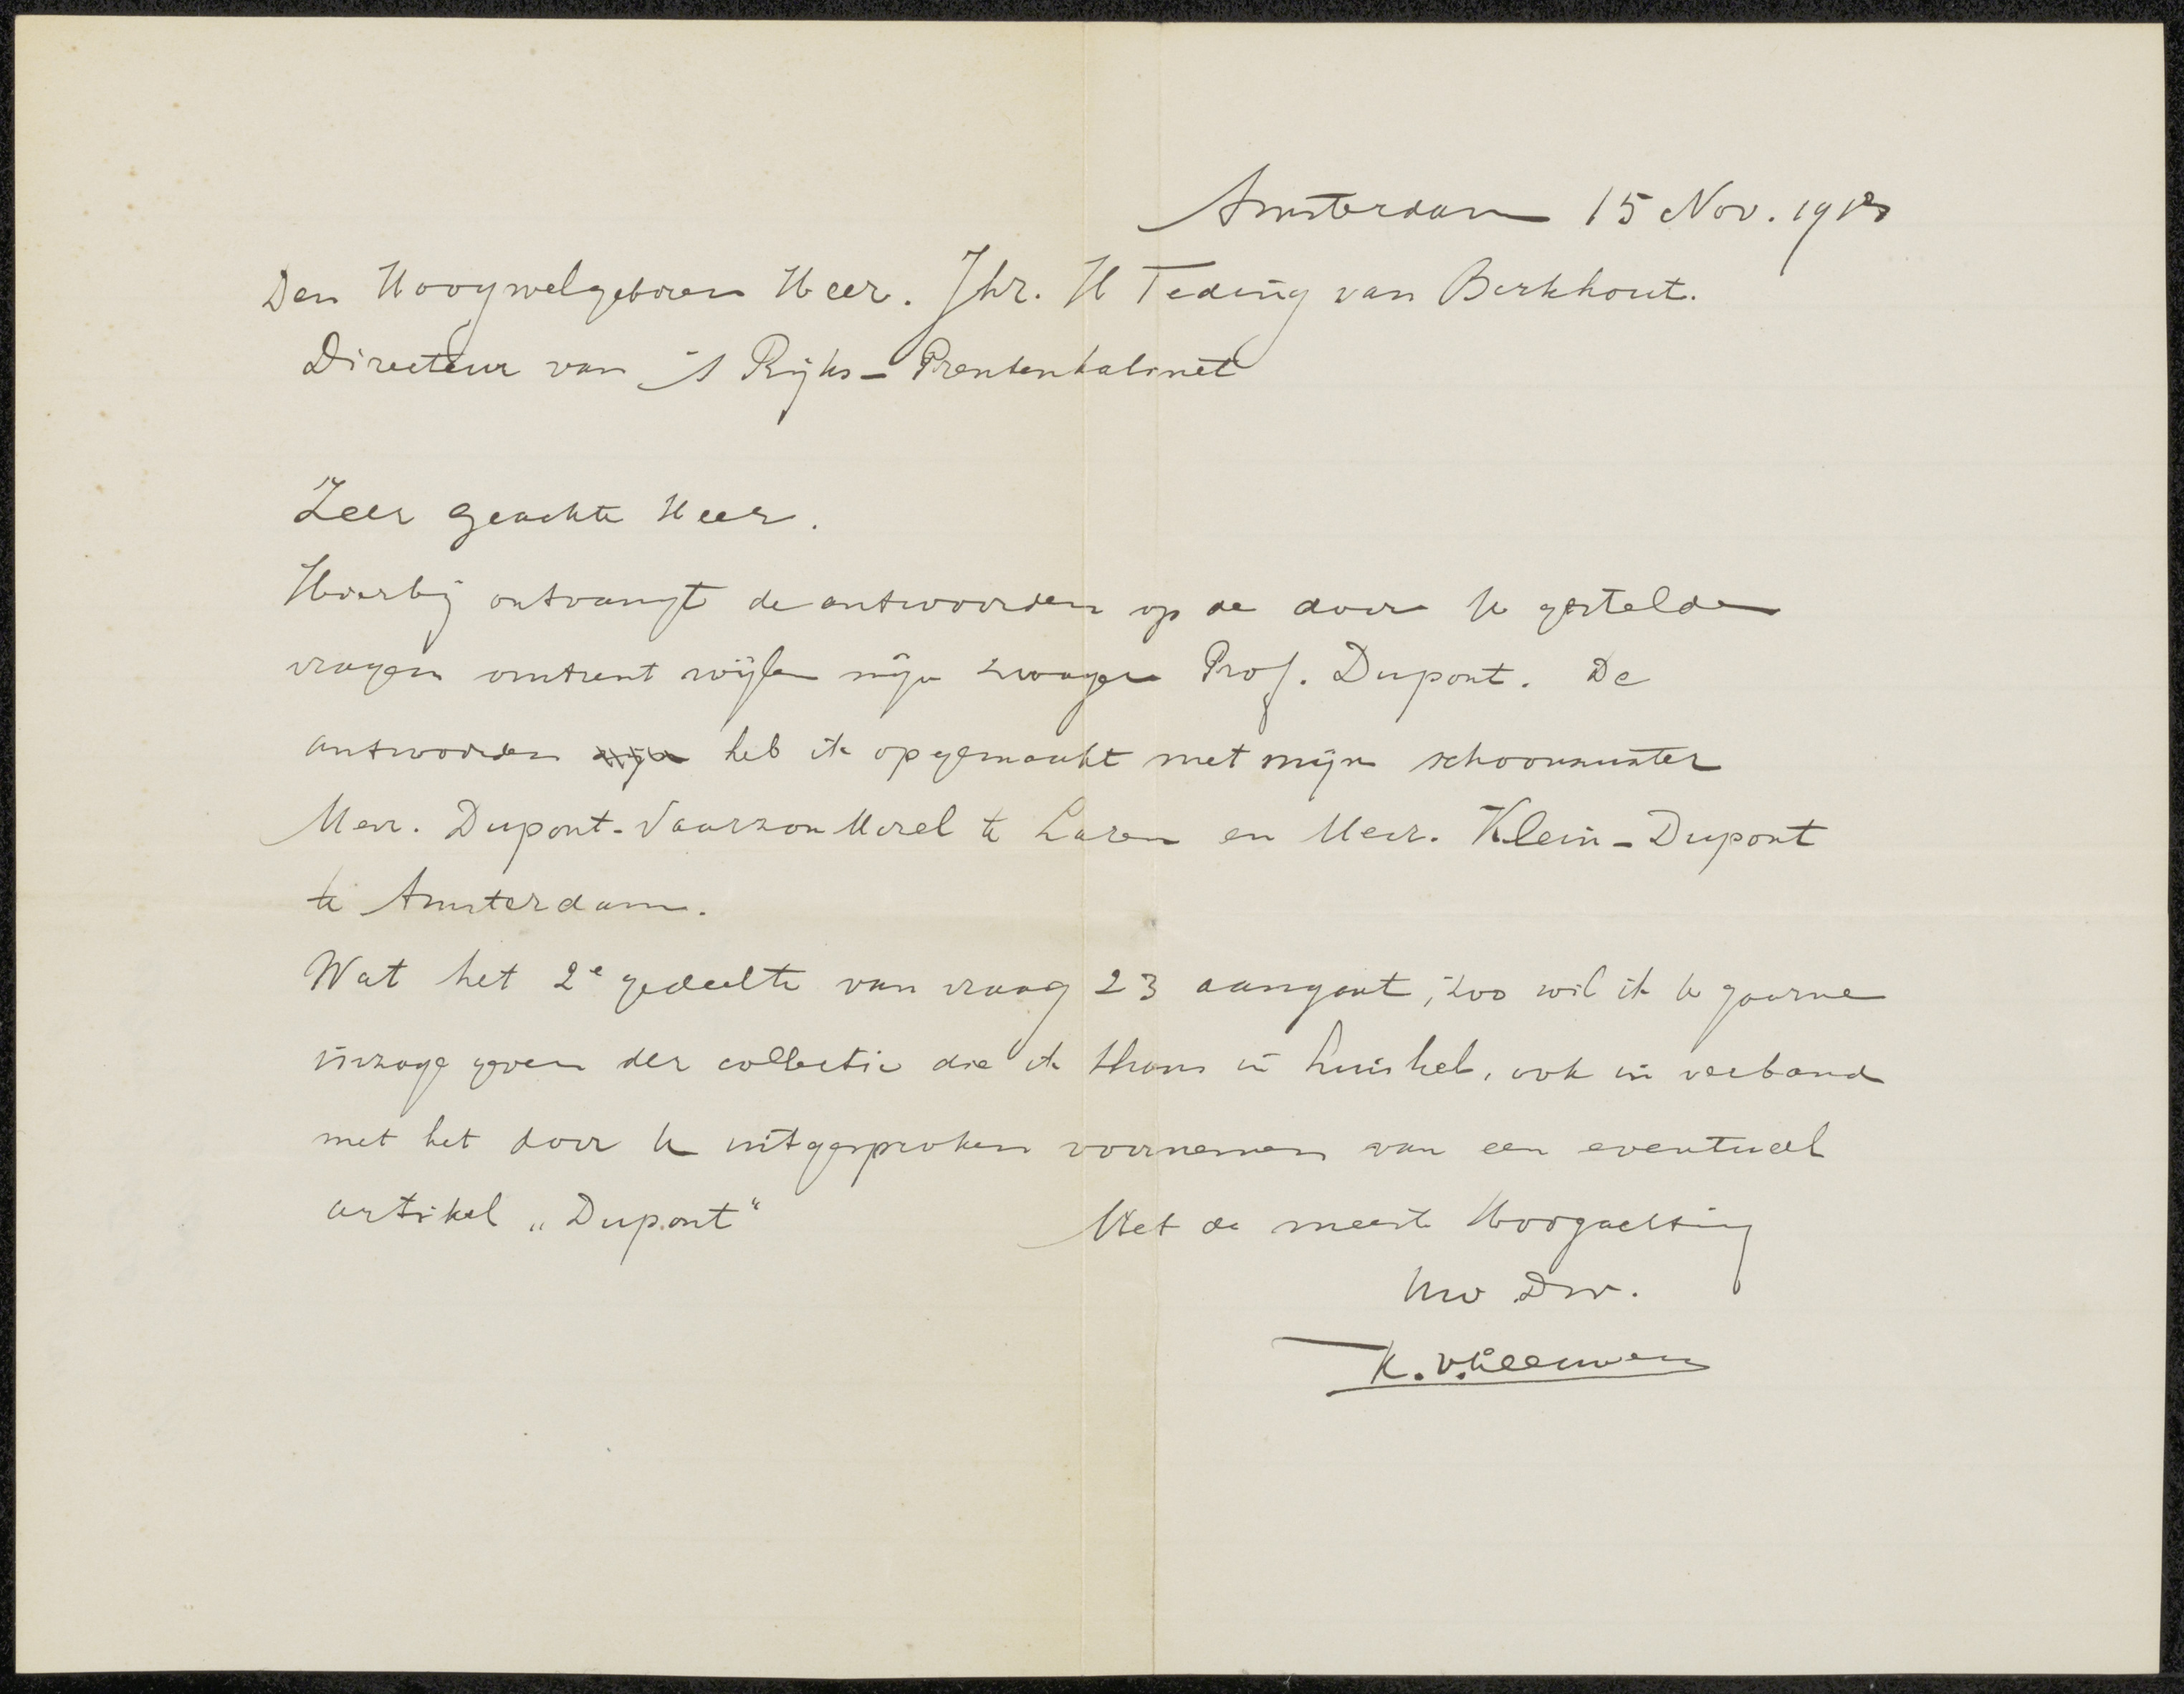 Amsterdam 15 Nov. 191
Den Hoogwelgeboren Heer. Jhr. H Teding van Berkhout.
Directeur van 's Rijks-Prentenkabinet
Zeer geachte Heer.
Hierbij ontvangt de antwoorden op de door U gestelde
vragen omtrent wijlen mijn zwager Prof. Dupont. De
antwoorden zijn heb ik opgemaakt met mijn schoonzuster
Mevr. Dupont-Vaarzon Morel te Laren en Mevr. Klein-Dupont
te Amsterdam.
Wat het 2e gedeelte van vraag 23 aangaat, zoo wil ik U gaarne
inzage geven der collectie die ik thans in huis heb, ook in verband
met het door U uitgesproken voornemen van een eventueel
artikel „Dupont"
Met de meeste Hoogachting
Uw Dw.
K. v. Leeuwen